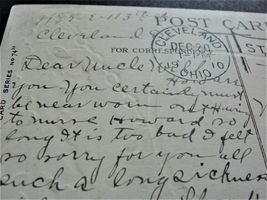 1153-E-113th
POST CARD
Cleveland O
CLEVELAND
DEC 20
10
OHIO
FOR CORRESPONDENCE
CARD SERIES No 74
Dear Uncle Will
you. You certainly must
be near worn out having
to nurse Howard so
long It is too bad I felt
so sorry for you all
such a long sickness